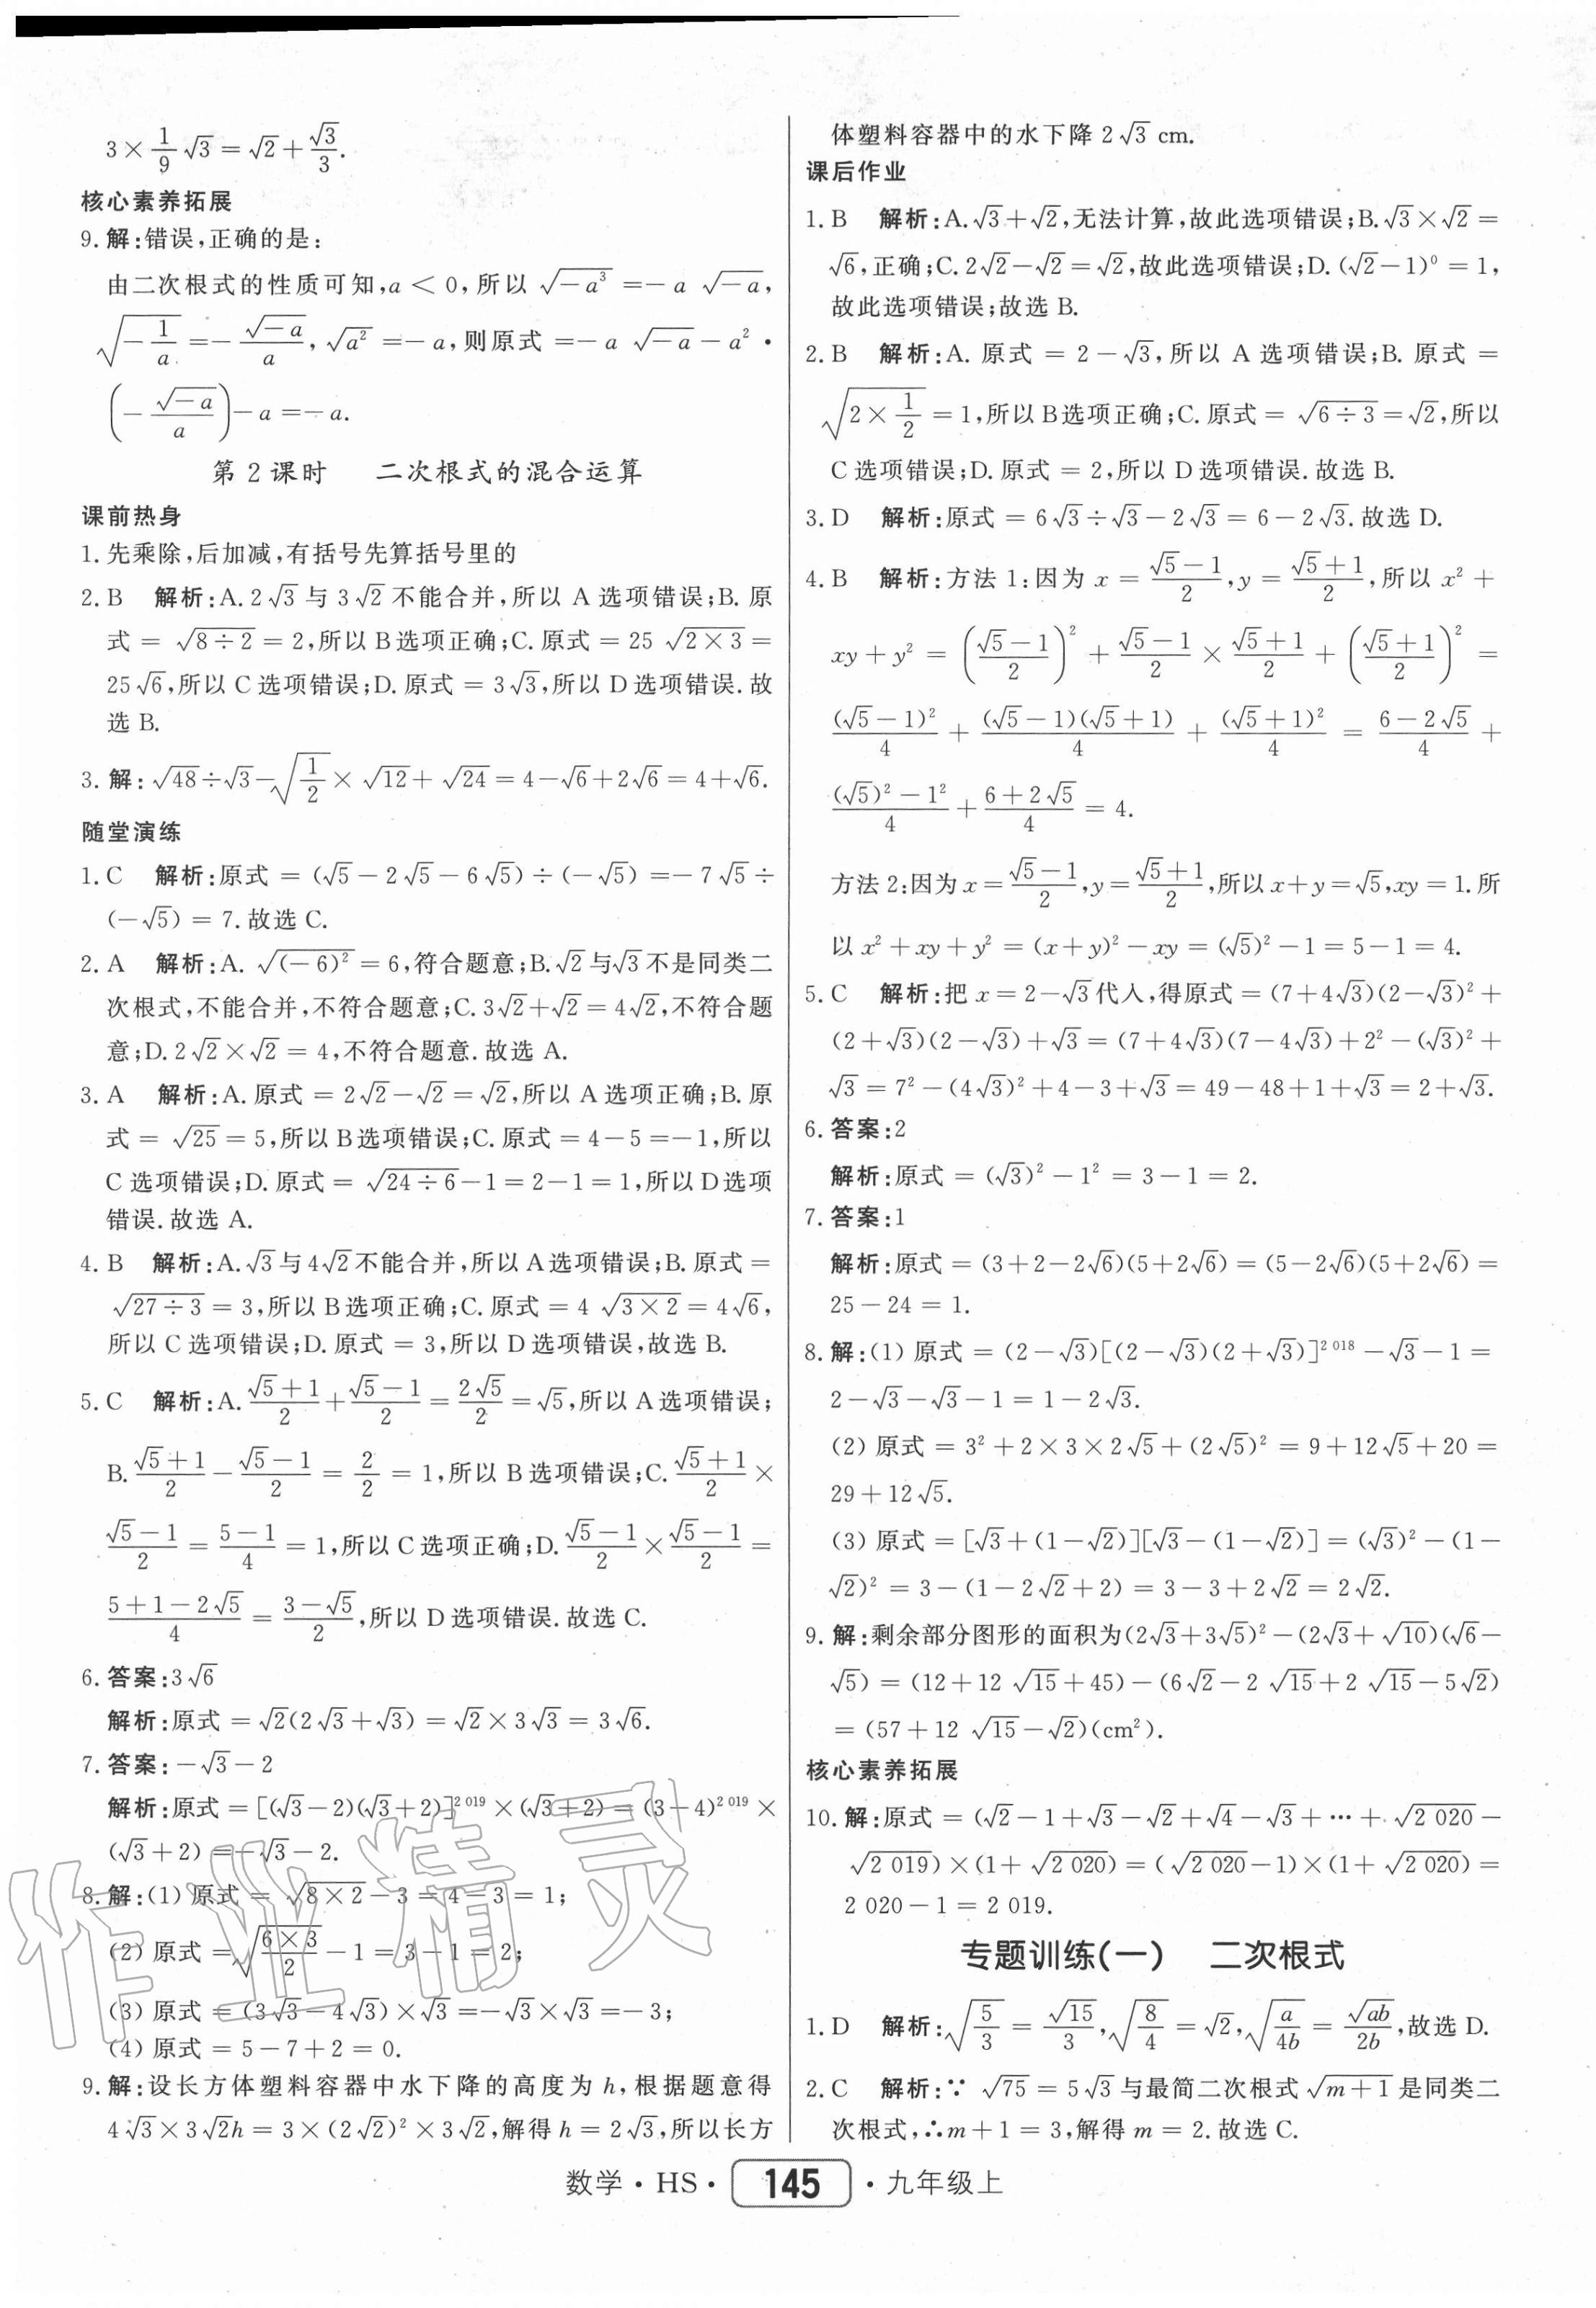 3×1/9√3=√2+√3/3.
核心素养拓展
9.解:错误,正确的是:
由二次根式的性质可知,a<0,所以√(-a³)=-a√(-a),
√(-1/a)=-√(-a)/a,√(a²)=-a,则原式=-a√(-a)-a²·
(-√(-a)/a)-a=-a.
第2课时 二次根式的混合运算
课前热身
1.先乘除,后加减,有括号先算括号里的
2.B 解析:A.2√3与3√2不能合并,所以A选项错误;B.原
式=√(8÷2)=2,所以B选项正确;C.原式=25√(2×3)=
25√6,所以C选项错误;D.原式=3√3,所以D选项错误.故
选B.
3.解:√48÷√3-√(1/2)×√12+√24=4-√6+2√6=4+√6.
随堂演练
1.C 解析:原式=(√5-2√5-6√5)÷(-√5)=-7√5÷
(-√5)=7.故选C.
2.A 解析:A.√((-6)²)=6,符合题意;B.√2与√3不是同类二
次根式,不能合并,不符合题意;C.3√2+√2=4√2,不符合题
意;D.2√2×√2=4,不符合题意.故选A.
3.A 解析:A.原式=2√2-√2=√2,所以A选项正确;B.原
式=√25=5,所以B选项错误;C.原式=4-5=-1,所以
C选项错误;D.原式=√(24÷6)-1=2-1=1,所以D选项
错误.故选A.
4.B 解析:A.√3与4√2不能合并,所以A选项错误;B.原式=
√(27÷3)=3,所以B选项正确;C.原式=4√(3×2)=4√6,
所以C选项错误;D.原式=3,所以D选项错误,故选B.
5.C 解析:A.(√5+1)/2+(√5-1)/2=2√5/2=√5,所以A选项错误;
B.(√5+1)/2-(√5-1)/2=2/2=1,所以B选项错误;C.(√5+1)/2×
(√5-1)/2=(5-1)/4=1,所以C选项正确;D.(√5-1)/2×(√5-1)/2=
(5+1-2√5)/4=(3-√5)/2,所以D选项错误.故选C.
6.答案:3√6
解析:原式=√2(2√3+√3)=√2×3√3=3√6.
7.答案:-√3-2
解析:原式=[(√3-2)(√3+2)]^2 019×(√3+2)=(3-4)^2 019×
(√3+2)=-√3-2.
8.解:(1)原式=√(8×2)-3=4-3=1;
(2)原式=√(6×3/2)-1=3-1=2;
(3)原式=(3√3-4√3)×√3=-√3×√3=-3;
(4)原式=5-7+2=0.
9.解:设长方体塑料容器中水下降的高度为h,根据题意得
4√3×3√2h=3×(2√2)²×3√2,解得h=2√3,所以长方
体塑料容器中的水下降2√3 cm.
课后作业
1.B 解析:A.√3+√2,无法计算,故此选项错误;B.√3×√2=
√6,正确;C.2√2-√2=√2,故此选项错误;D.(√2-1)⁰=1,
故此选项错误;故选B.
2.B 解析:A.原式=2-√3,所以A选项错误;B.原式=
√(2×1/2)=1,所以B选项正确;C.原式=√(6÷3)=√2,所以
C选项错误;D.原式=2,所以D选项错误.故选B.
3.D 解析:原式=6√3÷√3-2√3=6-2√3.故选D.
4.B 解析:方法1:因为x=(√5-1)/2,y=(√5+1)/2,所以x²+
xy+y²=((√5-1)/2)²+(√5-1)/2×(√5+1)/2+((√5+1)/2)²=
(√5-1)²/4+(√5-1)(√5+1)/4+(√5+1)²/4=(6-2√5)/4+
((√5)²-1²)/4+(6+2√5)/4=4.
方法2:因为x=(√5-1)/2,y=(√5+1)/2,所以x+y=√5,xy=1.所
以x²+xy+y²=(x+y)²-xy=(√5)²-1=5-1=4.
5.C 解析:把x=2-√3代入,得原式=(7+4√3)(2-√3)²+
(2+√3)(2-√3)+√3=(7+4√3)(7-4√3)+2²-(√3)²+
√3=7²-(4√3)²+4-3+√3=49-48+1+√3=2+√3.
6.答案:2
解析:原式=(√3)²-1²=3-1=2.
7.答案:1
解析:原式=(3+2-2√6)(5+2√6)=(5-2√6)(5+2√6)=
25-24=1.
8.解:(1)原式=(2-√3)[(2-√3)(2+√3)]^2 018-√3-1=
2-√3-√3-1=1-2√3.
(2)原式=3²+2×3×2√5+(2√5)²=9+12√5+20=
29+12√5.
(3)原式=[√3+(1-√2)][√3-(1-√2)]=(√3)²-(1-
√2)²=3-(1-2√2+2)=3-3+2√2=2√2.
9.解:剩余部分图形的面积为(2√3+3√5)²-(2√3+√10)(√6-
√5)=(12+12√15+45)-(6√2-2√15+2√15-5√2)
=(57+12√15-√2)(cm²).
核心素养拓展
10.解:原式=(√2-1+√3-√2+√4-√3+…+√(2 020)-
√(2 019))×(1+√(2 020))=(√(2 020)-1)×(1+√(2 020))=
2 020-1=2 019.
专题训练(一) 二次根式
1.D 解析:√(5/3)=√15/3,√(8/4)=√2,√(a/4b)=√(ab)/2b,故选D.
2.C 解析:∵√75=5√3与最简二次根式√(m+1)是同类二
次根式,∴m+1=3,解得m=2.故选C.
数学·HS·145·九年级上
作业精灵